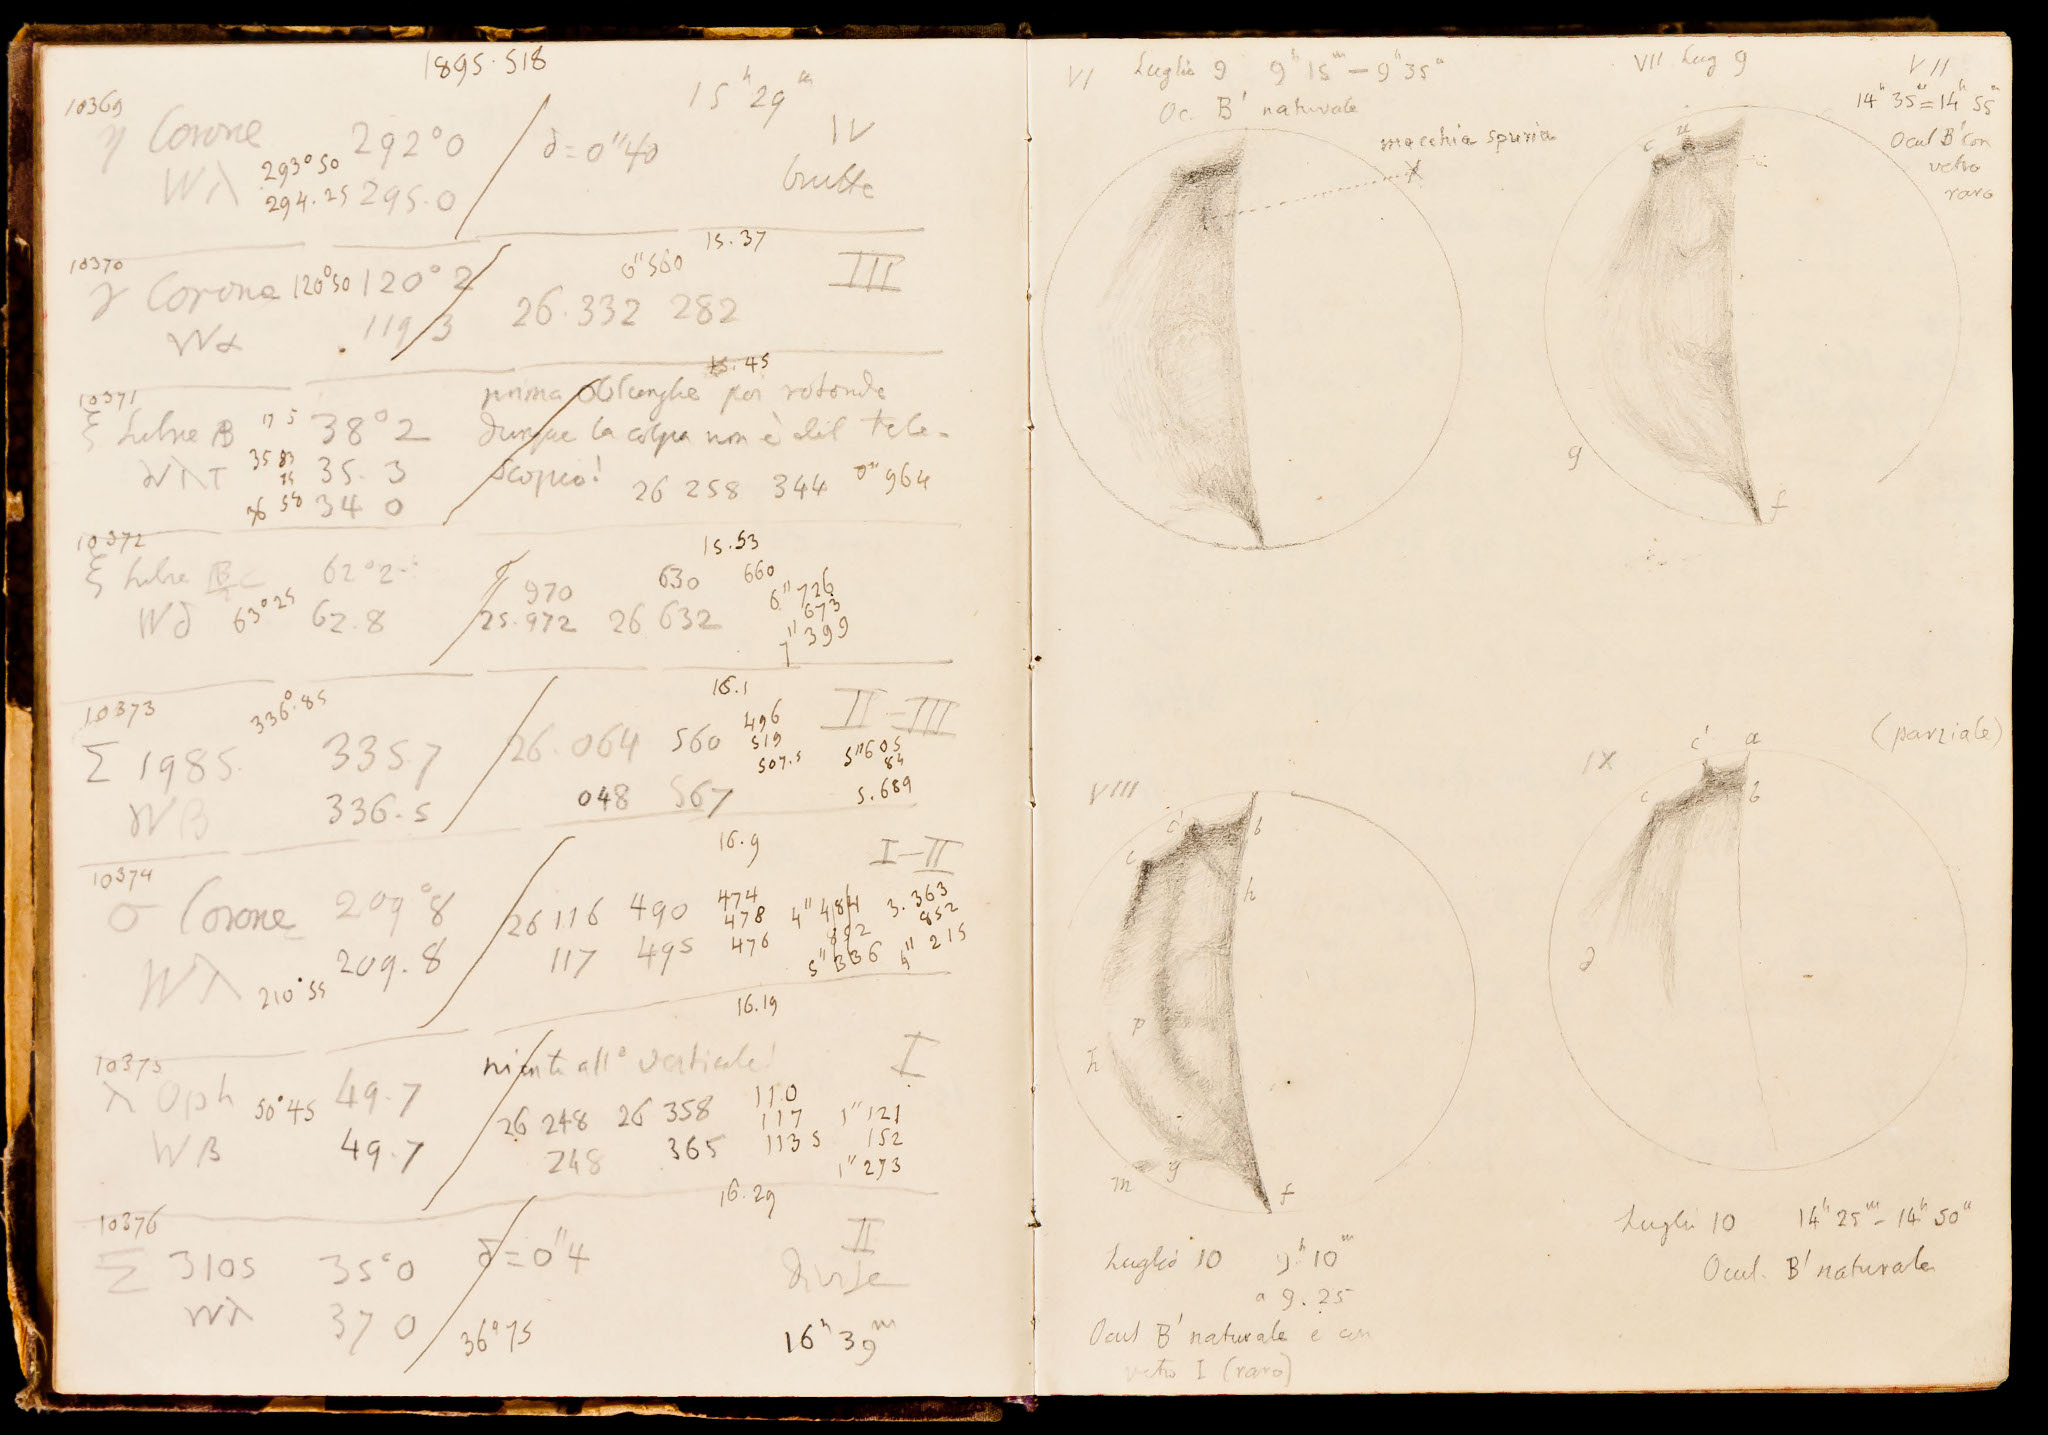 1895.518
10369
15ʰ 29ᵐ
η Corone 292°0 δ=0"40 IV
Wλ 293°50 295.0 brutte
294.25
10370 15.37
γ Corone 120°50 120°2 0"560 III
Wα 119 3 26.332 282
10371 15.45
prima oblunghe poi rotonde
ξ Libre AB 17 5 38°2 dunque la colpa non è del tele-
WλT 35 83 35.3 scopio! 26 258 344 0"964
75
36 58 34 0
10372 15.53
ξ Libre 62°2 970 630 660
Wδ 63°25 62.8 25.972 26 632 6"726
673
7"399
10373 336°.85 16.1
Σ 1985. 335.7 26.064 560 496 II=III
519
507.5 5"605
84
Wβ 336.5 048 567 5.689
10374 16.9
I-II
σ Corone 209°8 26 116 490 474 4"484 3.363
478 892 852
Wλ 210°55 209.8 117 495 476 5"336 215
16.19
10375 niente all° verticale! I
λ Oph 50°45 49.7 26 248 26 358 110
117 1"121
Wβ 49.7 248 365 113 5 152
1"273
10376 16.29
Σ 3105 35°0 δ=0"4 II
divise
Wλ 37 0 36°75 16ʰ 39ᵐ
VI Luglio 9 9ʰ 15ᵐ — 9ʰ 35ᵐ
Oc. B' naturale
macchia spuria
VII Lug 9 VII
14ʰ 35ᵐ=14ʰ 55ᵐ
Ocul B' con
vetro
raro
c
g
f
VIII
c' b
c
h
p
h
m g f
Luglio 10 9ʰ 10ᵐ
a 9.25
Ocul B' naturale e con
vetro I (raro)
(parziale)
IX
c' a
c b
d
Luglio 10 14ʰ 25ᵐ - 14ʰ 50ᵐ
Ocul. B' naturale